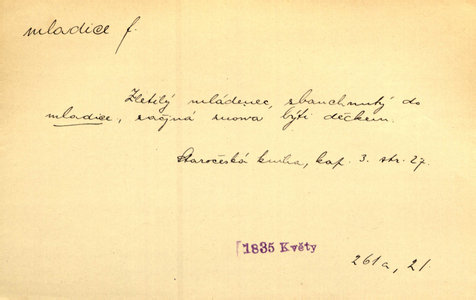 mladice f.
Zletilý mládenec, zbauchnutý do
mladice, začjná znowa býti děckem.
Staročeská kniha, kap. 3. str. 27.
[1835 Květy
261a, 21.